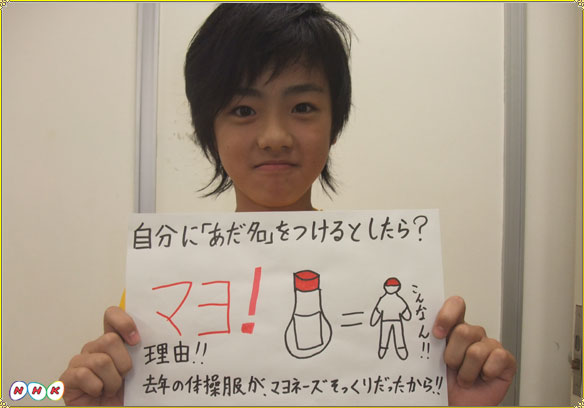 自分に「あだ名」をつけるとしたら？
マヨ！
=
こんなん!!
理由!!
去年の体操服が、マヨネーズそっくりだったから!!
NHK